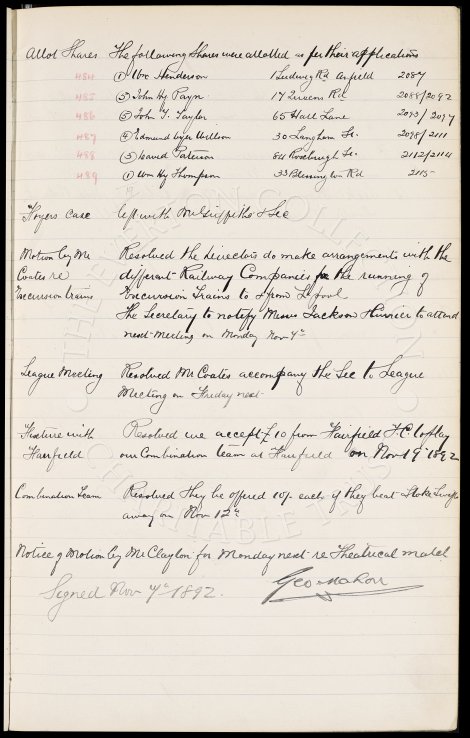 Allot Shares The following Shares were allotted as per their applications
484 (1) Wm Henderson 1 Ludwig Rd Anfield 2087
485 (5) John Hy Payn 17 Queens Rd 2088/2092
486 (5) John J. Taylor 65 Hall Lane 2093/2097
487 Edmund Dyer Willson 30 Langham St. 2098/2111
488 (3) David Paterson 84 Roxburgh St. 2112/2114
489 (1) Wm Hy Thompson 33 Blessington Rd 2115
case left with Mr Griffiths & Sec
Motion by Mr Resolved the Directors do make arrangements with the
Coates re different Railway Companies for the running of
Excursion trains Excursion Trains to & from L'pool
The Secretary to notify Messrs Jackson to attend
next Meeting on Monday Nov 7th
League Meeting Resolved Mr Coates accompany the Sec to League
Meeting on Friday next
Fixture with Resolved we accept £10 from Fairfield F.C. to play
Fairfield our Combination team at Fairfield on Nov 19th 1892
Combination Team Resolved they be offered 10/- each if they beat Stoke Swifts
away on Nov 12th
Notice of Motion by Mr Clayton for Monday next re Theatrical match
Signed Nov 7th 1892. Geo Mahon
THE EVERTON COLLECTION CHARITABLE TRUST